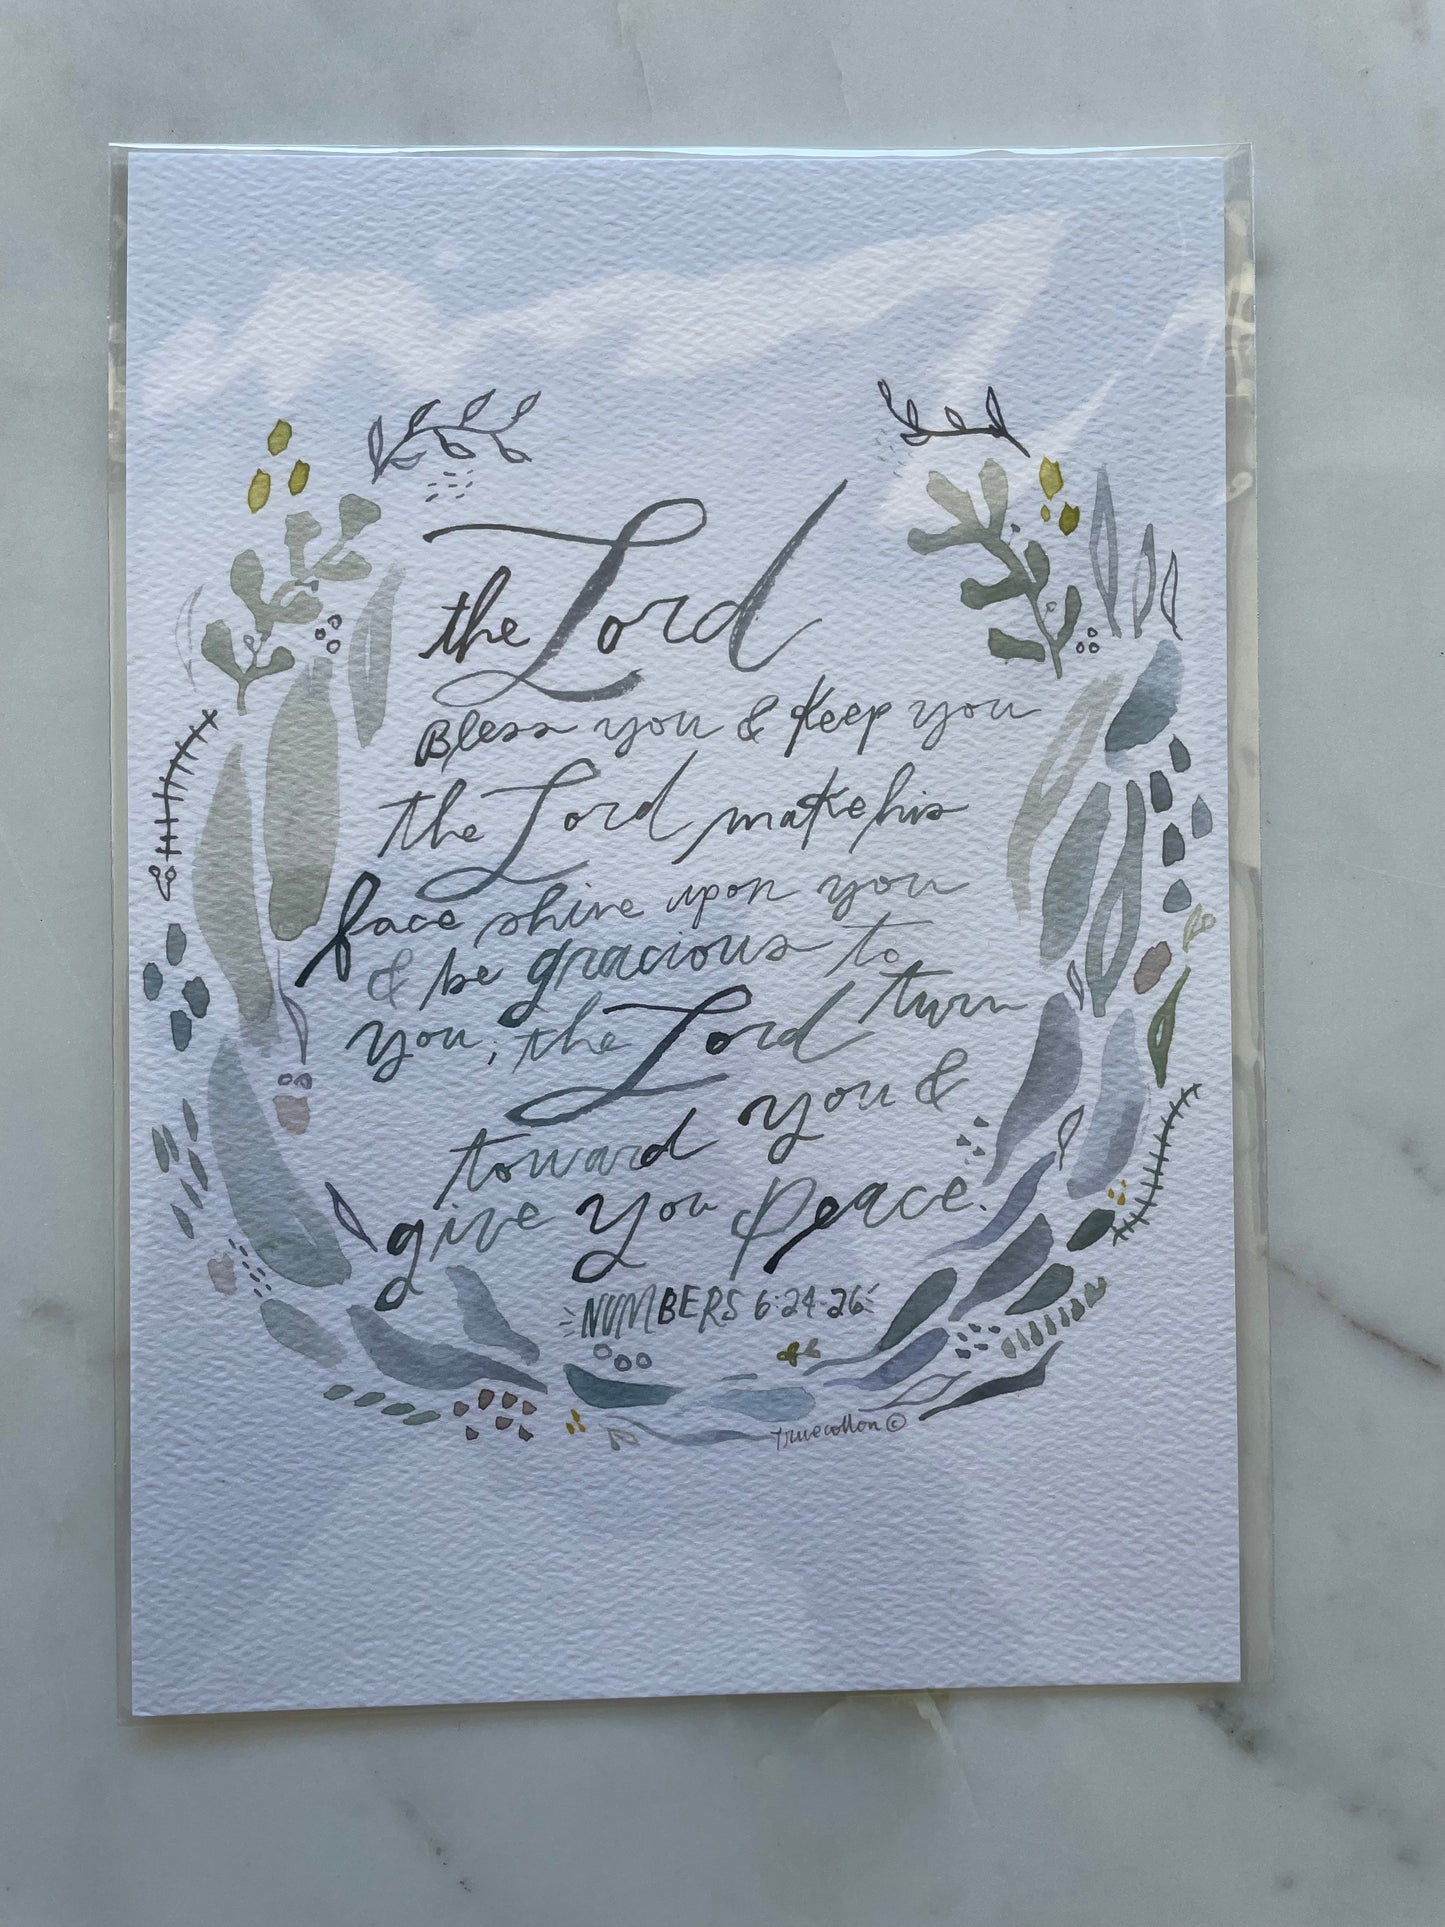 the Lord
Bless you & keep you
the Lord make his
face shine upon you
& be gracious to
you; the Lord turn
toward you &
give you peace.
NUMBERS 6:24-26
truecotton ©